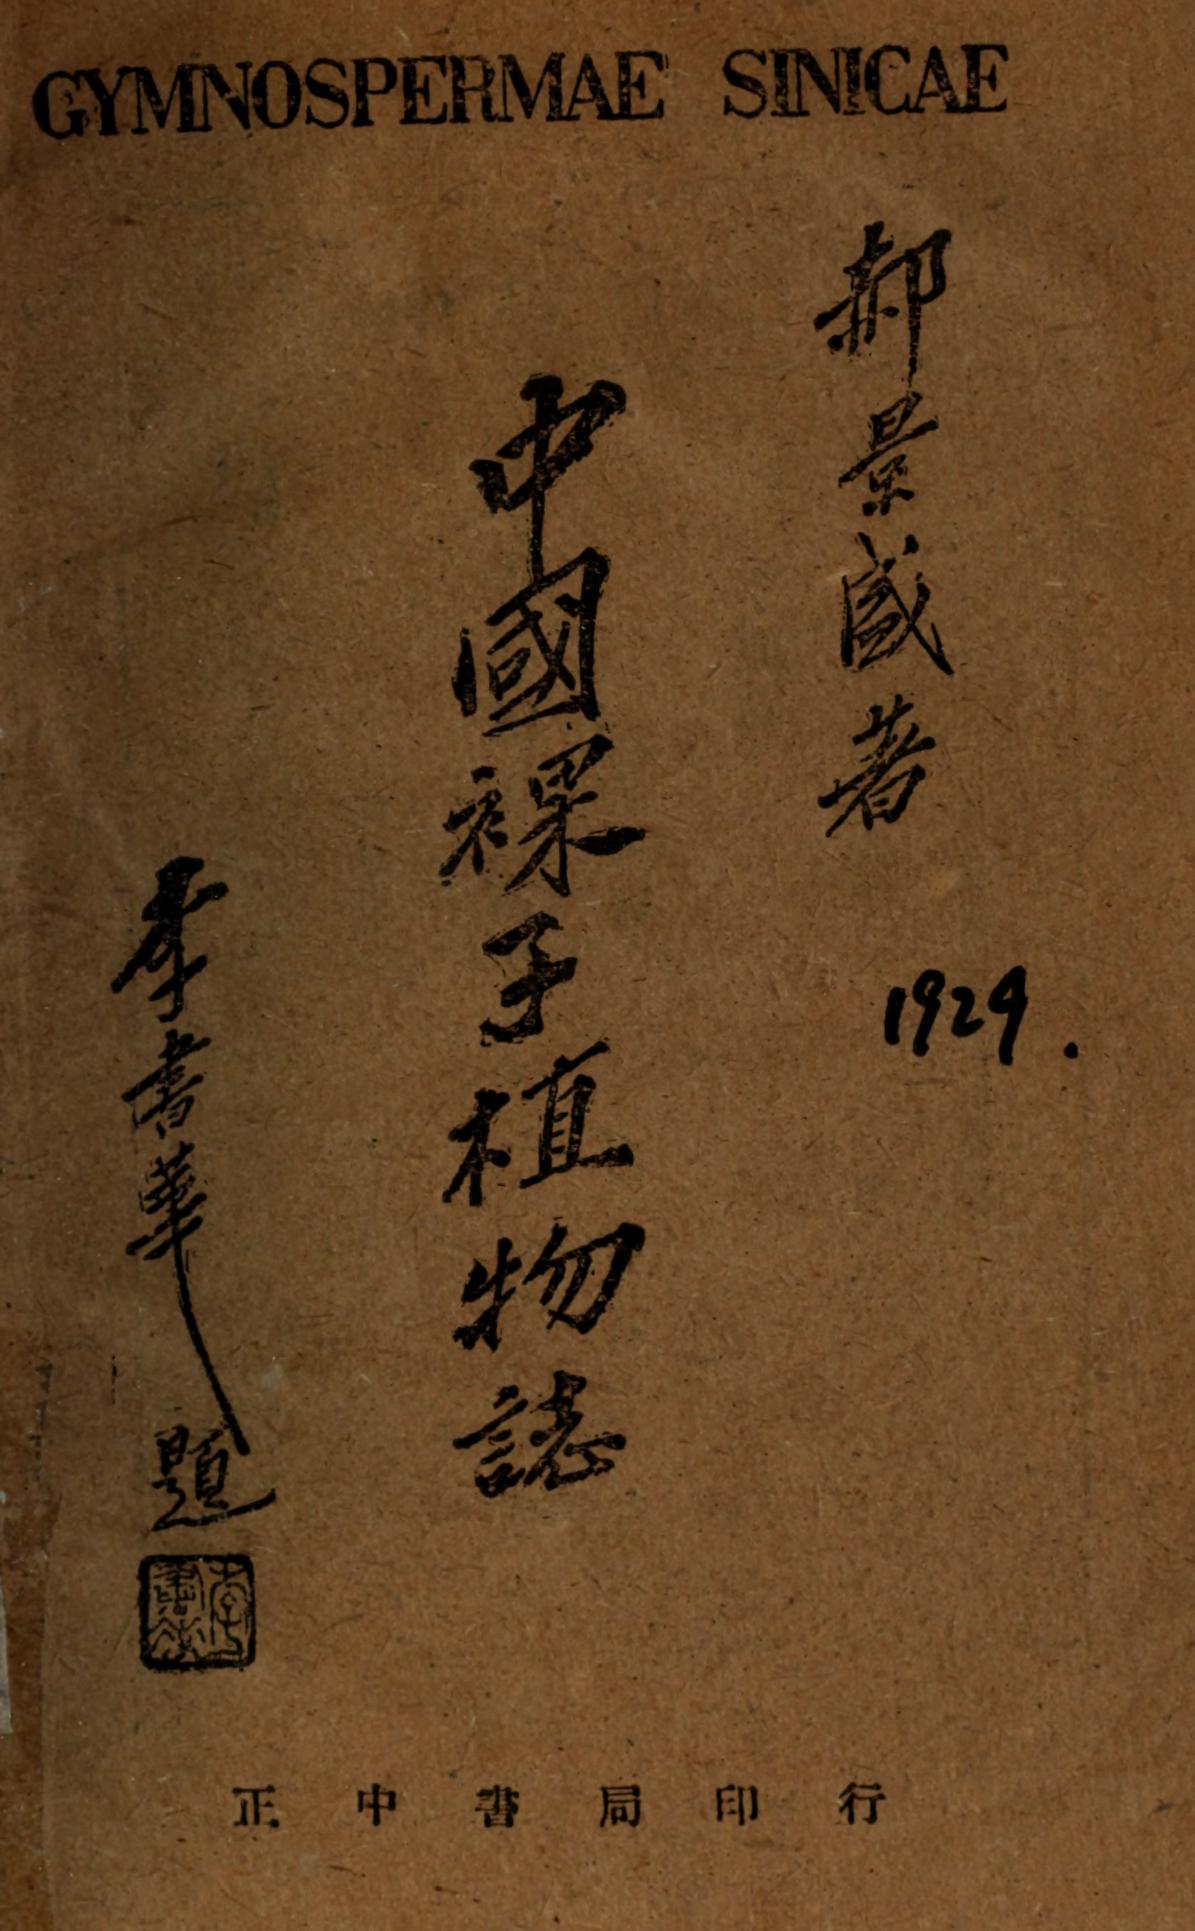 GYMNOSPERMAE SINICAE
郝景盛著
1929.
中國裸子植物誌
李書華題
李書華
正中書局印行